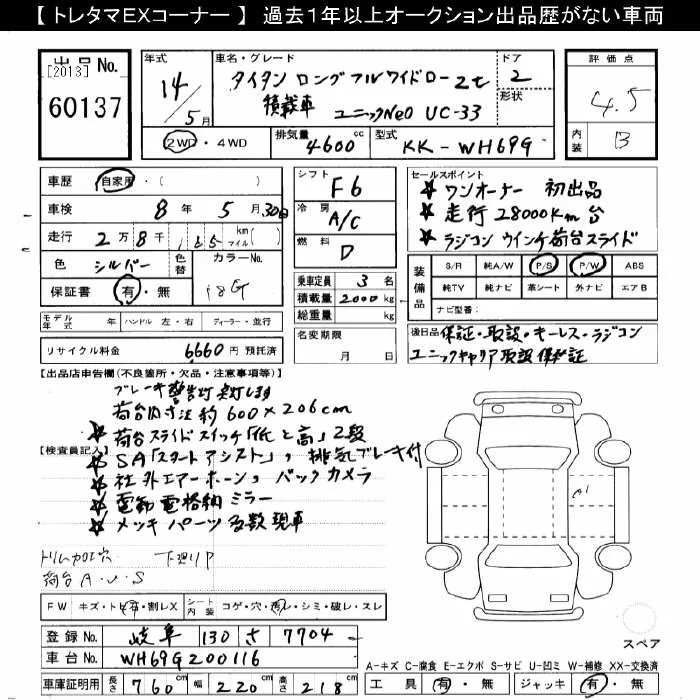 【 トレタマEXコーナー 】 過去1年以上オークション出品歴がない車両
出品 No.
[2013]
60137
年式 14/5月
車名・グレード タイタン ロングフルワイドロー 2t
積載車 ユニックNeo UC-33
ドア 2
形状
評価点 4.5
内装 B
2WD・4WD 排気量 4600cc 型式 KK-WH69G
車歴 自家用・( )
車検 8年 5月 30日
走行 2万8千 km マイル( )
色 シルバー 色替 カラーNo. 18G
保証書 有・無
シフト F6
冷房 A/C
燃料 D
乗車定員 3名
積載量 2000kg
総重量 kg
セールスポイント
★ ワンオーナー 初出品
★ 走行 28000Km台
★ ラジコン ウインチ 荷台スライド
装備品 S/R 純A/W P/S P/W ABS
純TV 純ナビ 革シート 外ナビ エアB
ナビ型番:
モデル年式 年 ハンドル 左・右 ディーラー・並行
名変期限 月 日
後日品 保証・取説・キーレス・ラジコン
ユニックキャリア取説 保証証
リサイクル料金 6660円 預託済
【出品店申告欄(不良箇所・欠品・注意事項等)】
ブレーキ警告灯 点灯します
荷台内寸法 約600×206cm
★ 荷台スライドスイッチ「低と高」2段
【検査員記入】
★ SA「スタートアシスト」, 排気ブレーキ付
★ 社外エアーホーン, バックカメラ
★ 電動電格納ミラー
★ メッキパーツ多数 現車
トリム加工穴 下廻りP
荷台A・U・S
A1
FW キズ・トビ石・割レX シート内装 コゲ・穴・汚レ・シミ・破レ・スレ
登録No. 岐阜 130 さ 7704
車台No. WH69G200116
車庫証明用 長さ 760cm 幅 220cm 高さ 218cm
スペア
A-キズ C-腐食 E-エクボ S-サビ U-凹ミ W-補修 XX-交換済
工具 有・無 ジャッキ 有・無